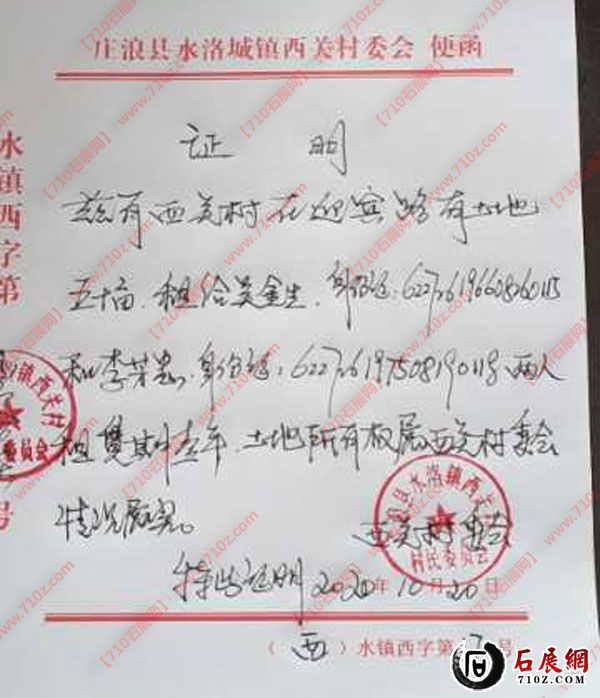 庄浪县水洛城镇西关村委会 便函
水镇西字第
号
证 明
兹有西关村在迎宾路有土地
五十亩,租给吴金生,身份证:
和李芳,身份证:两人
租赁期十五年,土地所有权属西关村委会
情况属实。
西关村委会
特此证明 2020年10月20日
(西)水镇西字第 号
水洛镇西关村
村民委员会
【710石展网】www.710z.com
石展網
710Z.COM